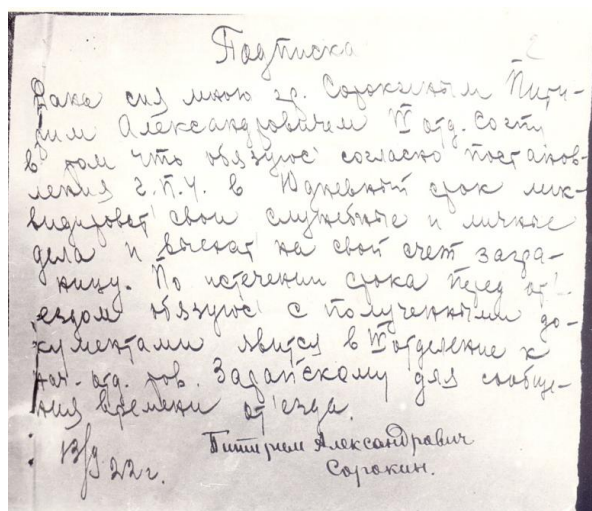 Подписка
2
Дана сия мною гр. Сорокиным Пити-
рим Александровичем IV отд. СОГПУ
в том что обязуюс' согласно постанов-
ления Г.П.У. в 10 дневный срок лик-
видировать свои служебные и личные
дела и выехат' на свой счет загра-
ницу. По истечении срока перед от'-
ездом обязуюс' с полученными до-
кументами явится в IV отделение к
нач. отд. тов. для сообще-
ния времени от'езда.
13/9 22 г.
Питирим Александрович
Сорокин.